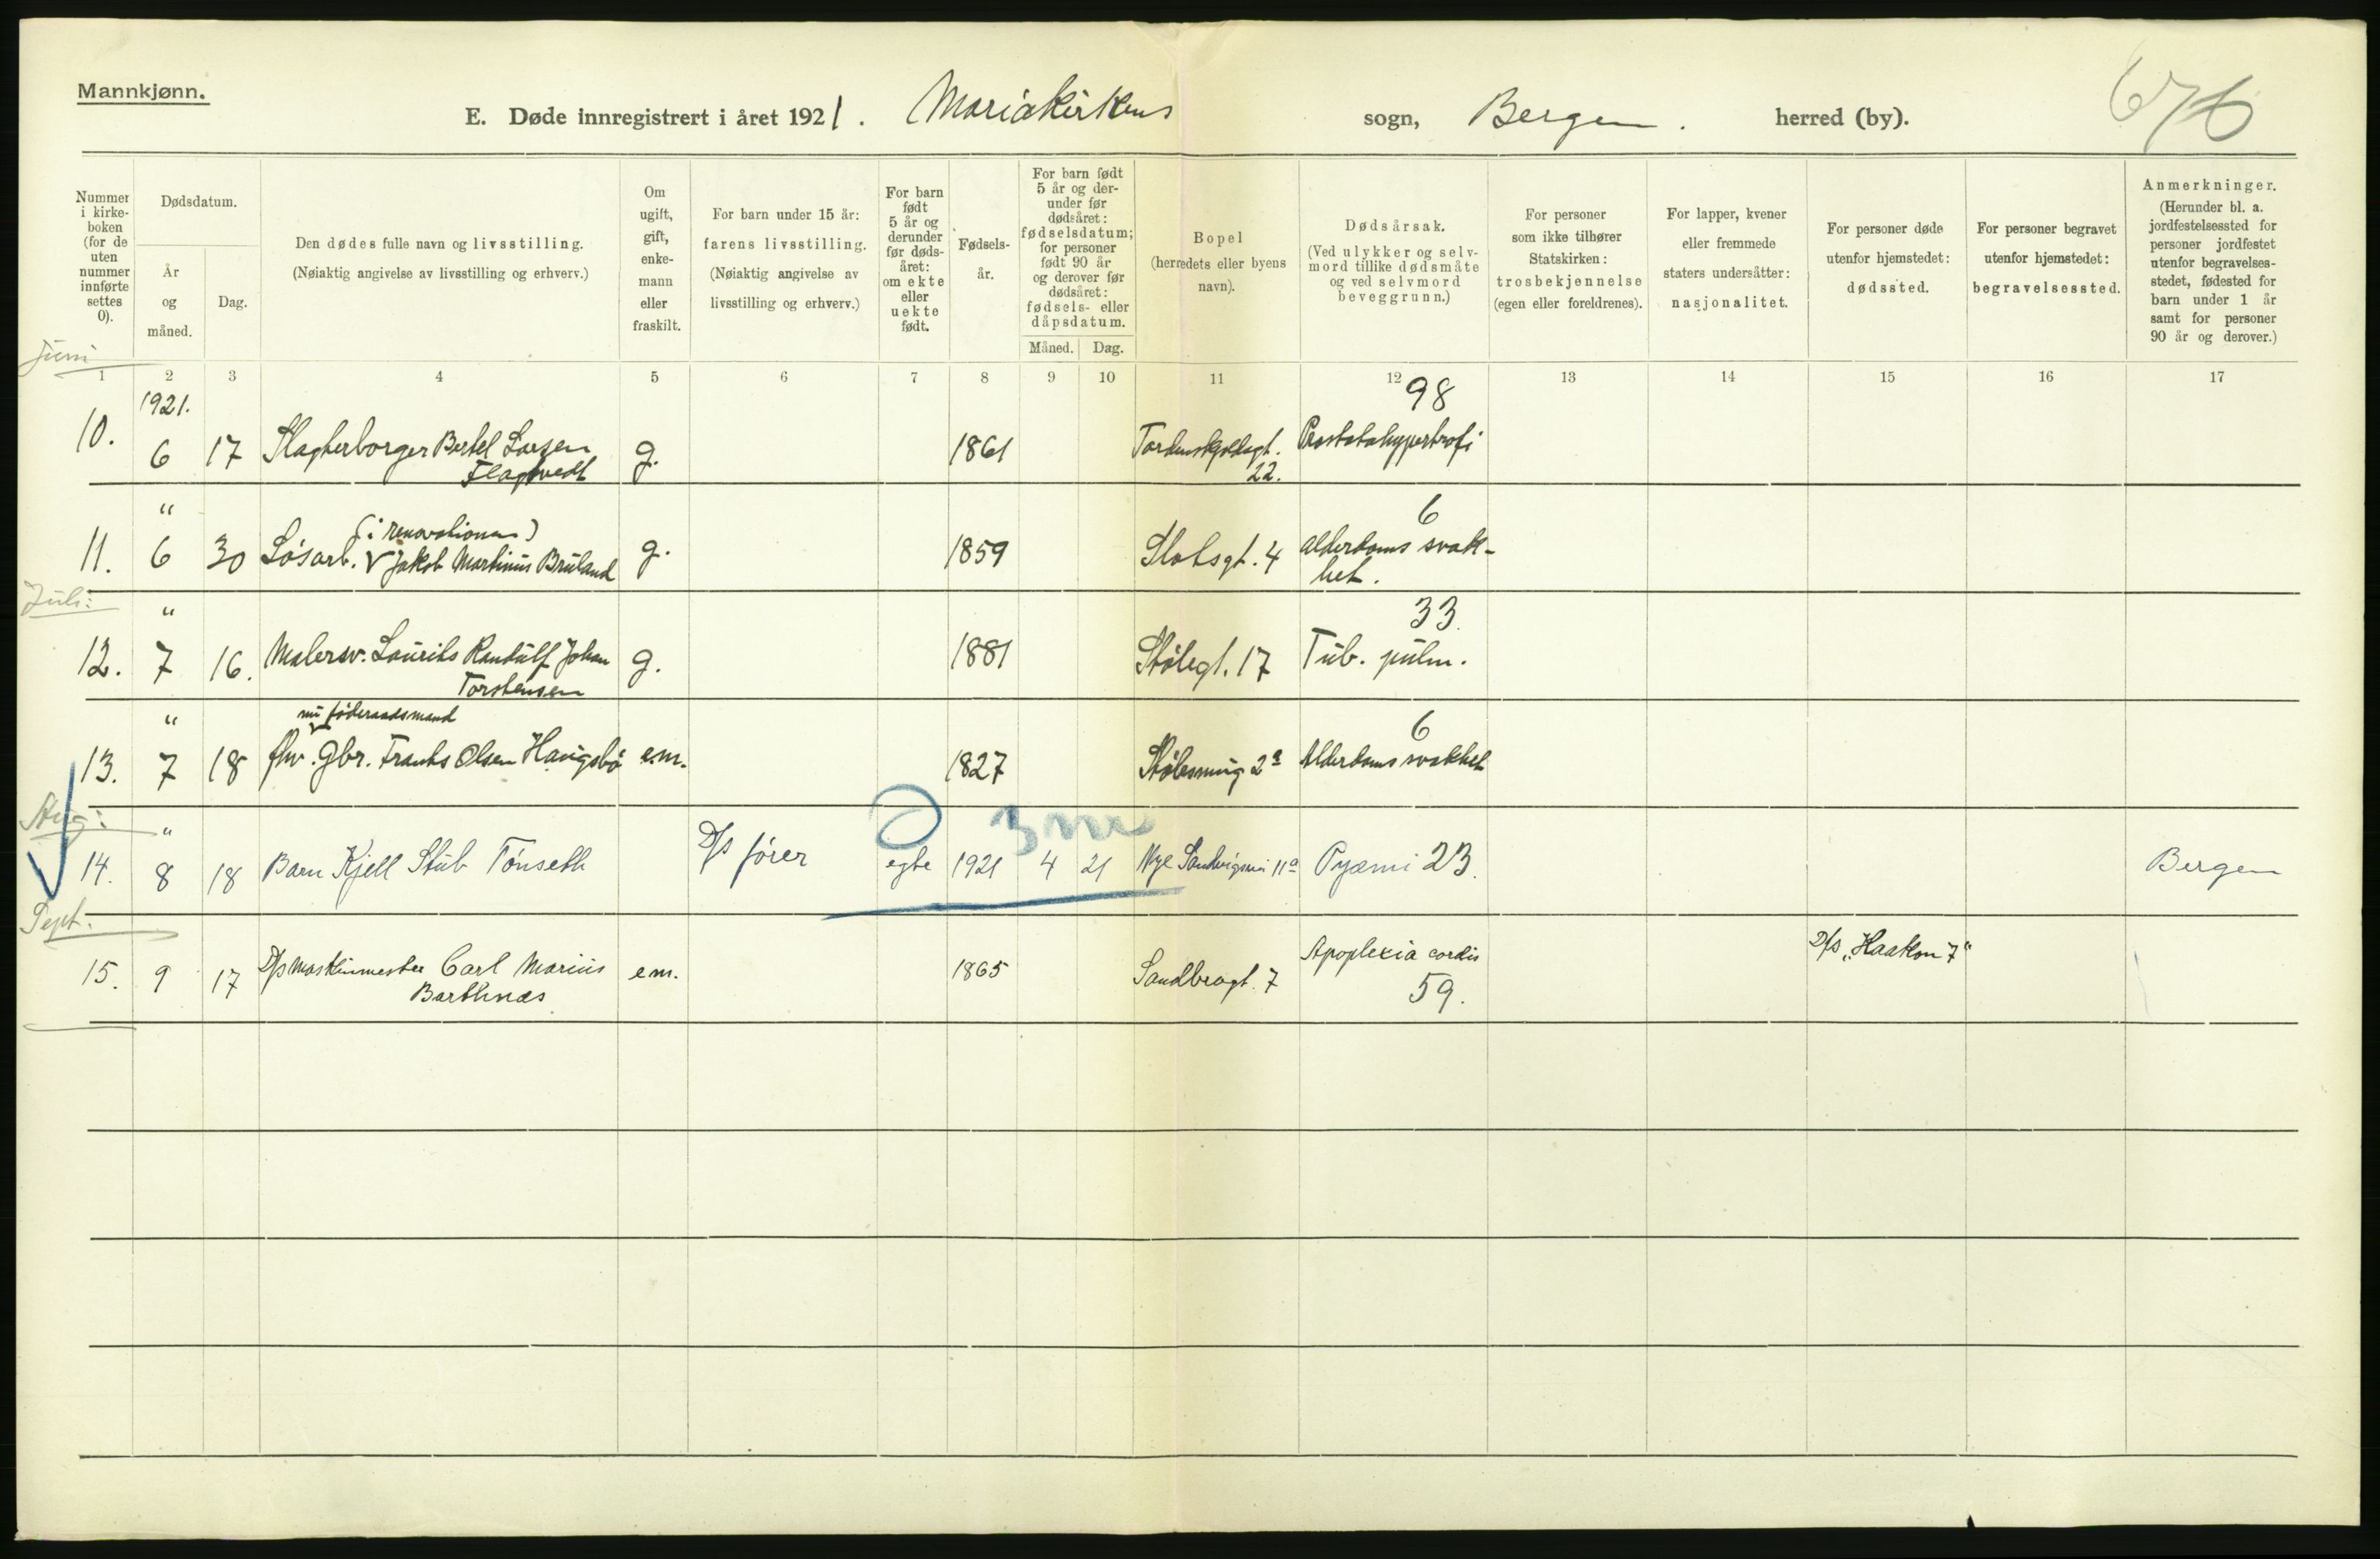 Mannkjønn.
E. Døde innregistrert i året 1921. Mariakirkens sogn, Bergen. herred (by).
676
Nummer i kirke- boken (for de uten nummer innførte settes 0).
Dødsdatum.
År og måned.
Dag.
Den dødes fulle navn og livsstilling.
(Nøiaktig angivelse av livsstilling og erhverv.)
Om ugift, gift, enke- mann eller fraskilt.
For barn under 15 år: farens livsstilling.
(Nøiaktig angivelse av livsstilling og erhverv.)
For barn født 5 år og derunder før døds- året: om ekte eller uekte født.
Fødsels- år.
For barn født 5 år og der- under før dødsåret: fødselsdatum; for personer født 90 år og derover før dødsåret: fødsels- eller dåpsdatum.
Måned. Dag.
Bopel (herredets eller byens navn).
Dødsårsak.
(Ved ulykker og selv- mord tillike dødsmåte og ved selvmord beveggrunn.)
For personer som ikke tilhører Statskirken: trosbekjennelse (egen eller foreldrenes).
For lapper, kvener eller fremmede staters undersåtter: nasjonalitet.
For personer døde utenfor hjemstedet: dødssted.
For personer begravet utenfor hjemstedet: begravelsessted.
Anmerkninger.
(Herunder bl. a. jordfestelsessted for personer jordfestet utenfor begravelses- stedet, fødested for barn under 1 år samt for personer 90 år og derover.)
Juni
1 2 3 4 5 6 7 8 9 10 11 12 13 14 15 16 17
1921.
98
10. 6 17 Slagterborger Bertel Larsen g. 1861 Tordenskjoldsgt. Prostatahypertrofi
Flagtvedt
22.
" 6
(i renovationen)
11. 6 30 Løsarb. Jakob Martinius Bruland g. 1859 Slotsgt. 4 Alderdoms svak-
het.
Juli:
" 33.
12. 7 16. Malersv. Laurits Randulf Johan g. 1881 Stølegt. 17 Tub. pulm.
Torstensen
" nu føderaadsmand 6
13. 7 18 fhv. Gbr. Frants Olsen Haugsbø e.m. 1827 Stølesmug 2a Alderdoms svakhet
Aug:
" 3 mnd
14. 8 18 Barn Kjell Stub Tønseth D/s fører egte 1921 4 21 Nye Sandvigsvei 11a Pyæmi 23. Bergen
Sept.
15. 9 17 D/s Maskinmester Carl Marius e.m. 1865 Sandbrogt. 7 Apoplexia cordis D/s „Haakon 7“
Barthnæs
59.